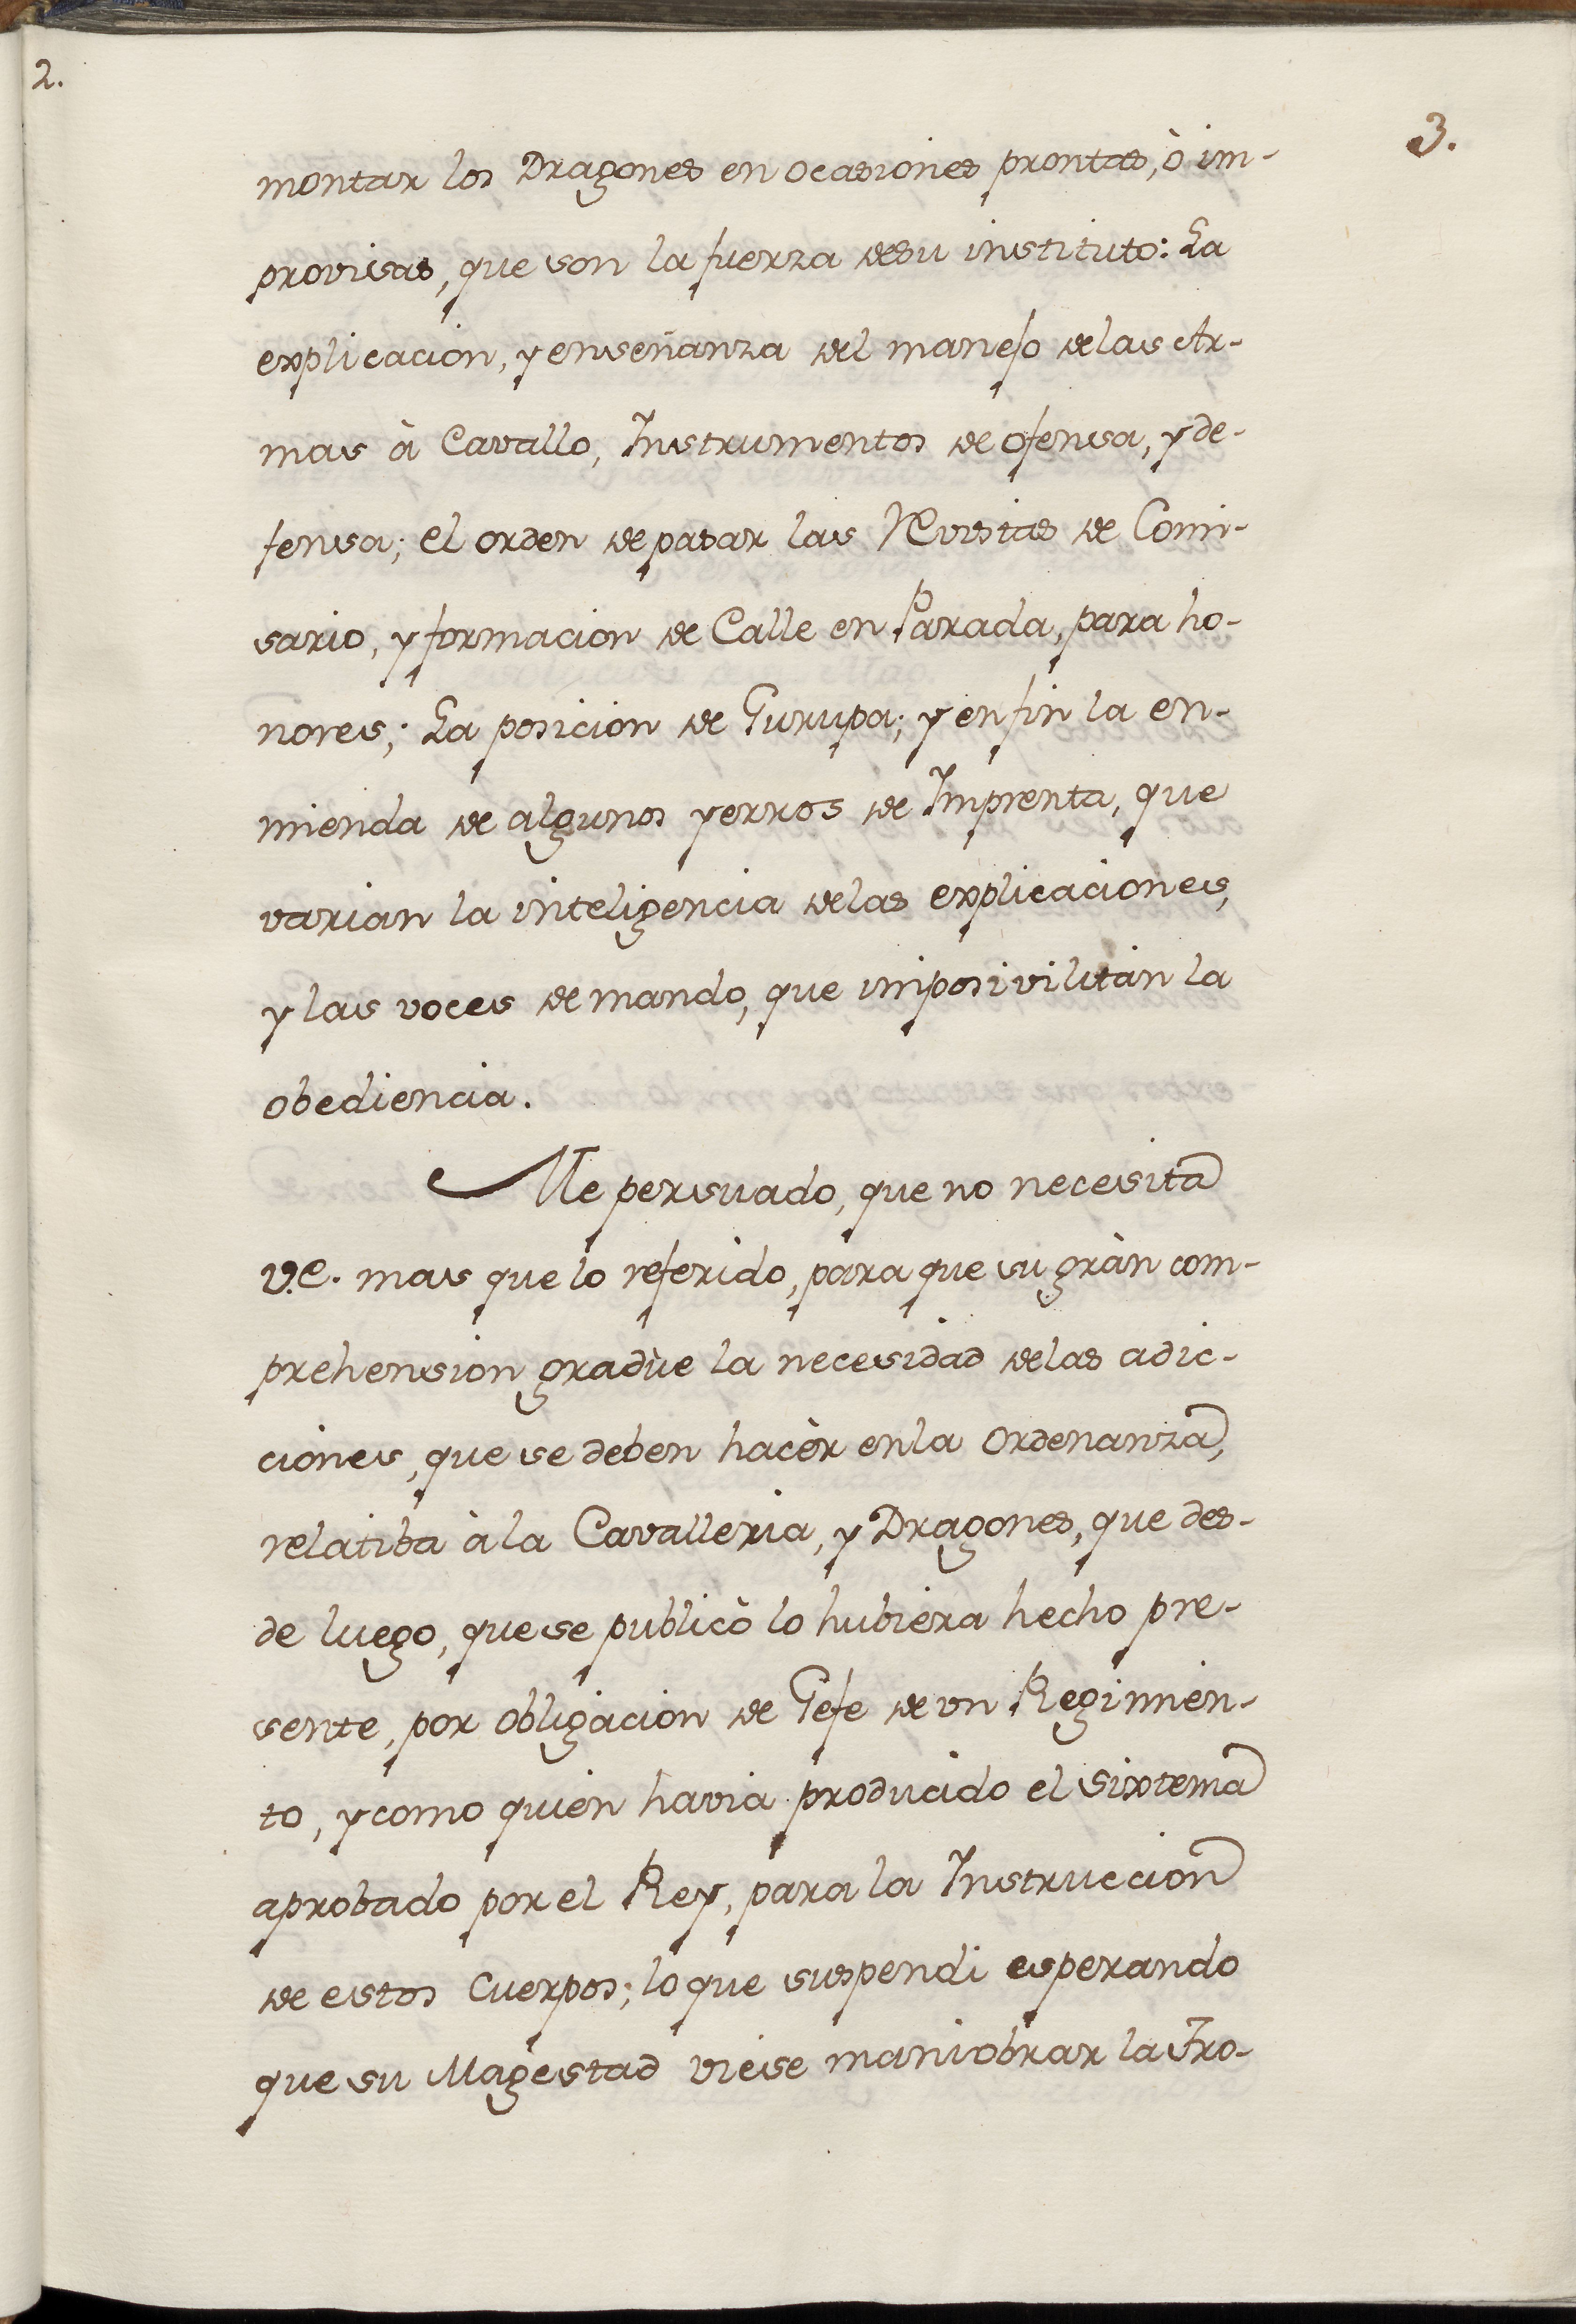 2.
3.
montar los Dragones en ocasiones prontas, ò im-
provisas, que son la fuerza desu instituto: La
explicacion, y enseñanza del manejo delas Ar-
mas à Cavallo, Instrumentos de ofensa, y de-
fensa; el orden depasar las Revistas de Comi-
sario, y formacion de Calle en Parada, para ho-
nores; La posicion de Gurupa; y enfin la en-
mienda de algunos yerros de Imprenta, que
varian la inteligencia delas explicaciones,
y las voces demando, que imposivilitàn la
obediencia.
Me persuado, que no necesita
V.E. mas que lo referido, para que su gràn com-
prehension gradùe la necesidad delas adic-
ciones, que se deben hacèr enla Ordenanza,
relatiba à la Cavalleria, y Dragones, que des-
de luego, que se publicò lo hubiera hecho pre-
sente, por obligacion de Gefe de vn Regimien-
to, y como quien havia producido el Sixtema
aprobado por el Rey, para la Instruccion
de estos Cuerpos; lo que suspendi esperando
que su Magestad viese maniobrar la Tro-